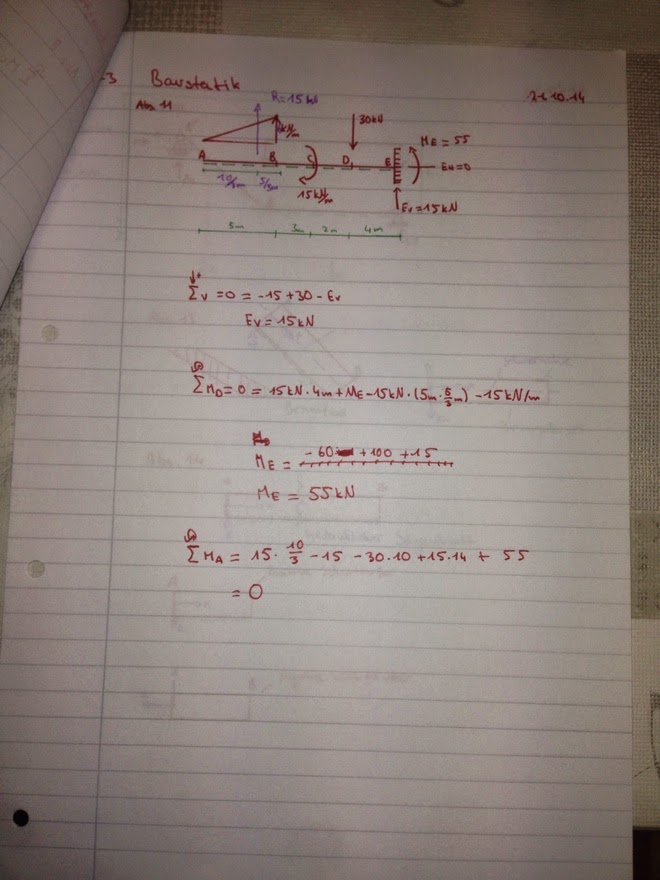 -3 Baustatik
21.10.14
Abb. 11
R=15kN
kN/m
30kN
M_E = 55
A B C D E
E_H=0
10/3m 5/3m
15kN/m
E_V=15kN
5m 3m 2m 4m
Σ_V =0 = -15+30-E_V
E_V = 15kN
Σ M_D=0 = 15kN·4m+M_E-15kN·(5m·5/3m) -15kN/m
M_E = -60 +100 +15
M_E = 55kN
Σ M_A = 15·10/3 -15 -30·10 +15·14 + 55
= 0